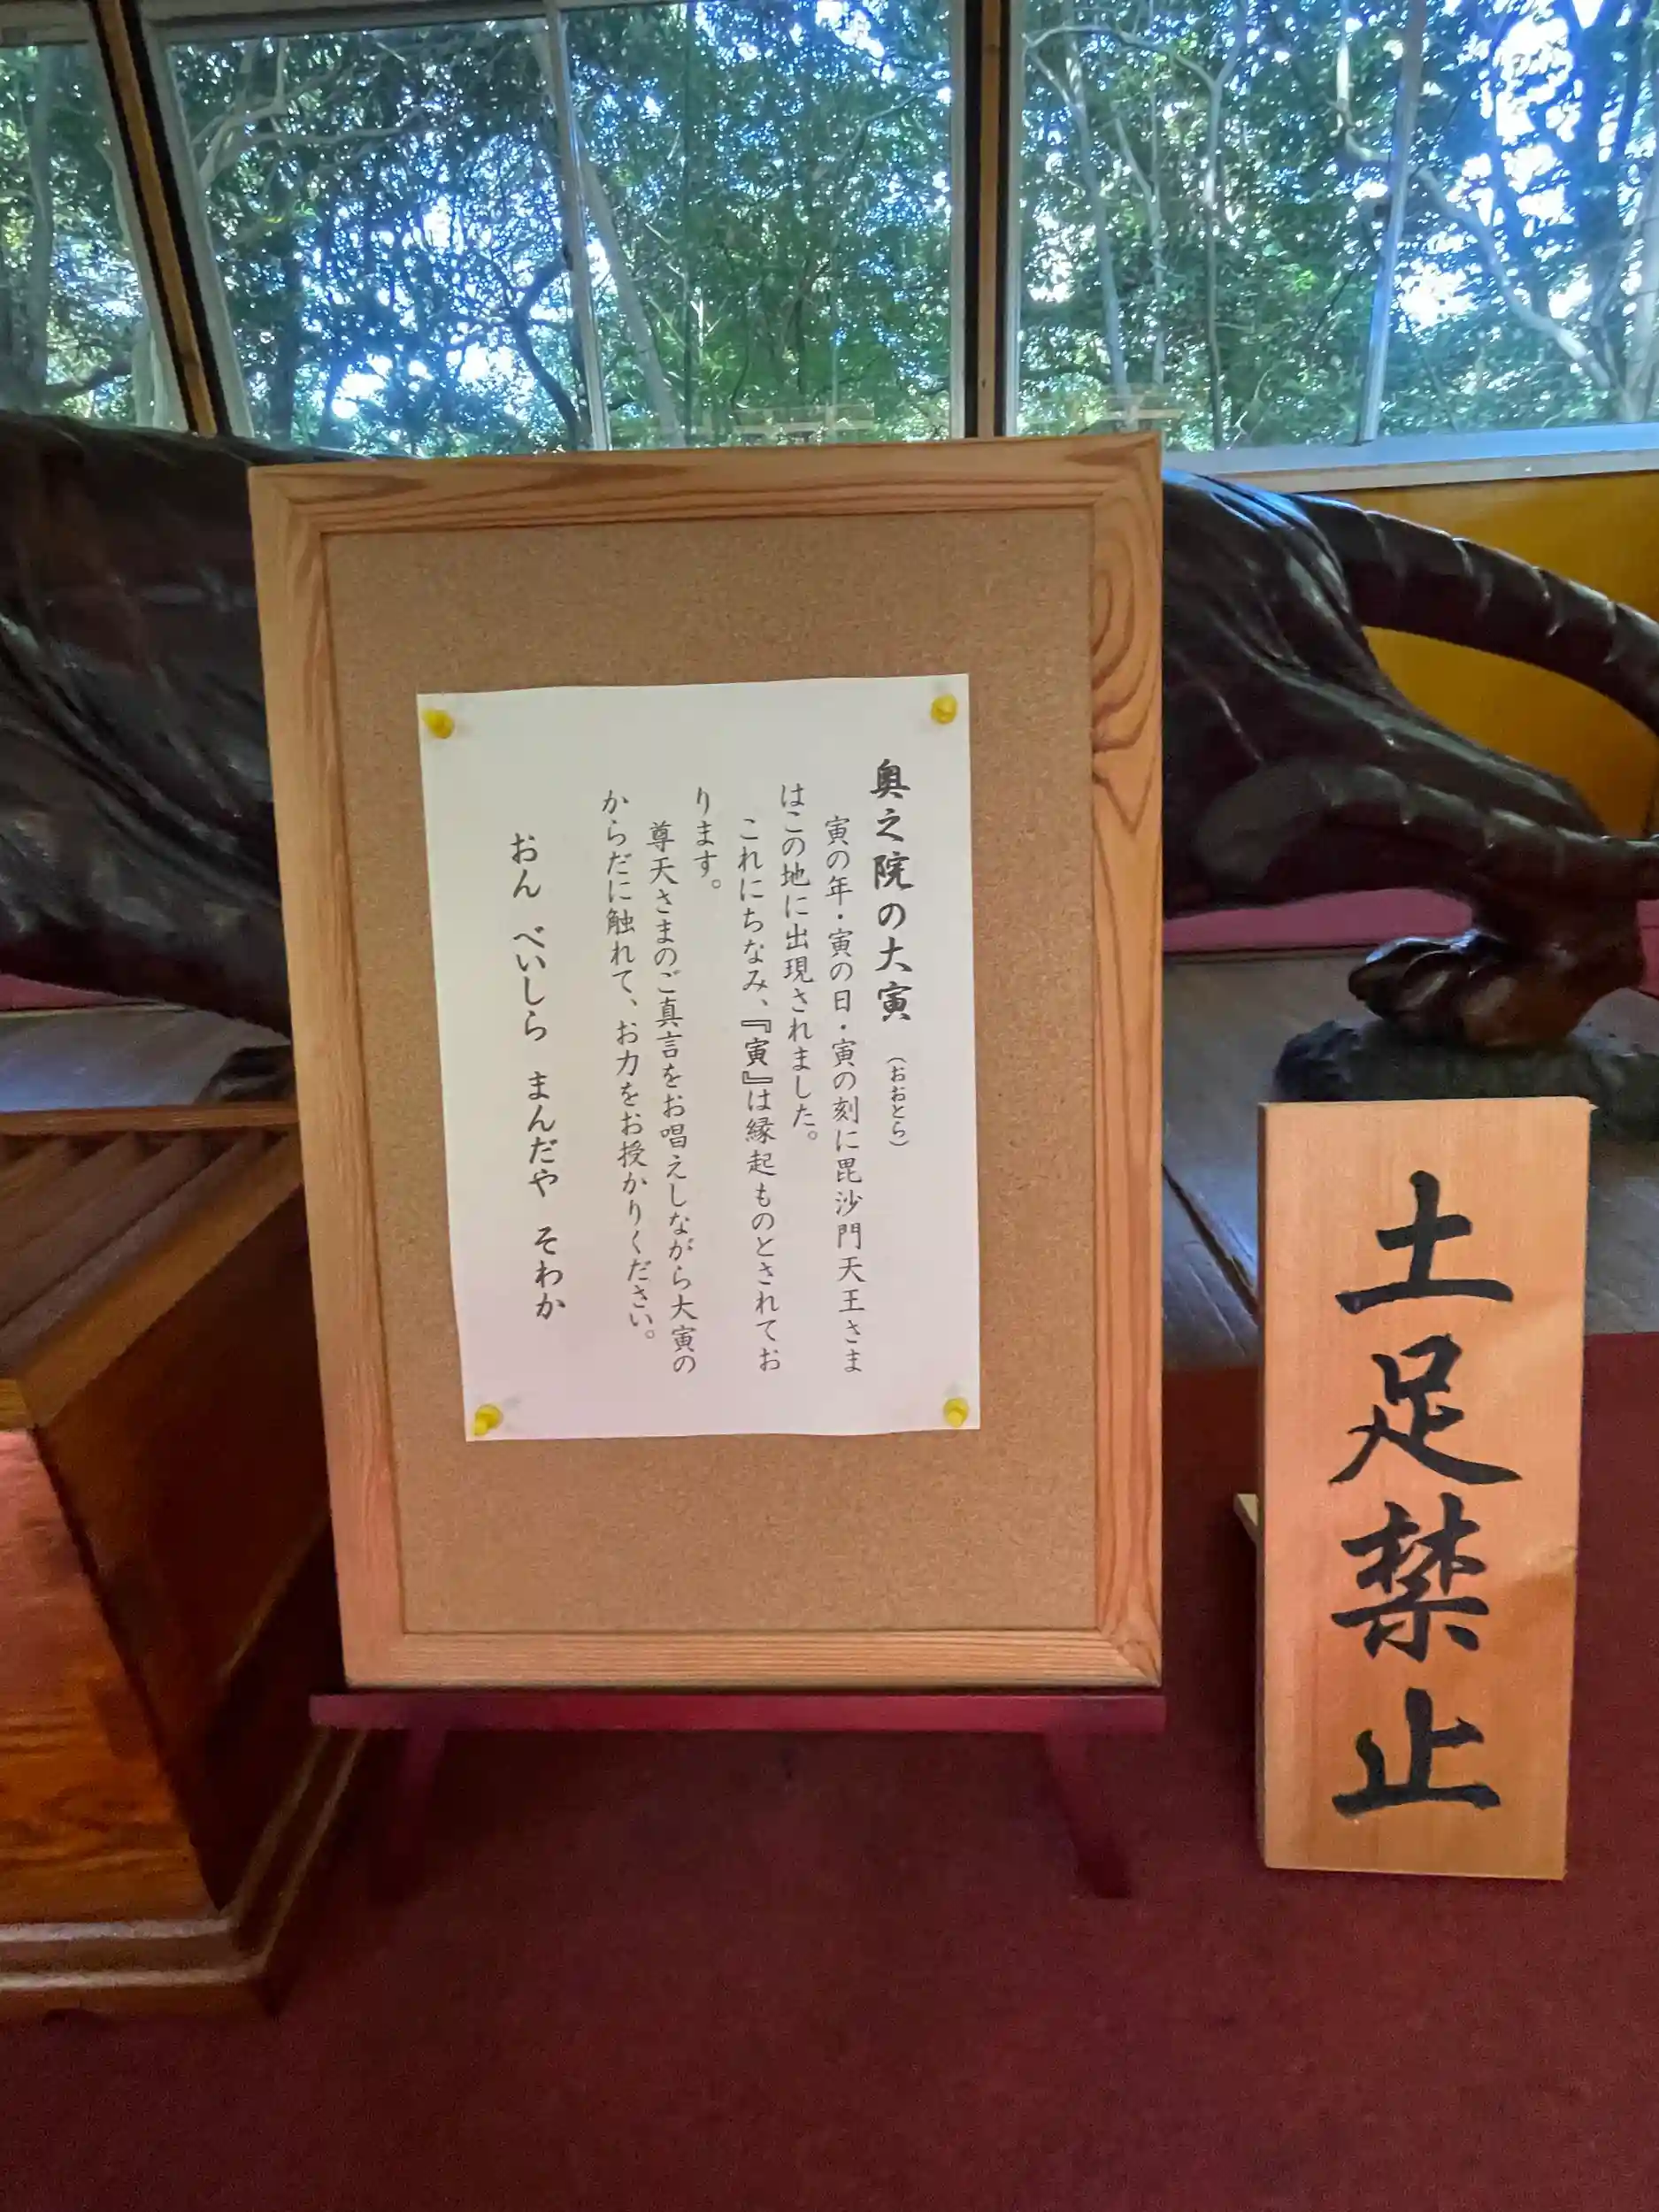 奥之院の大寅（おおとら）
寅の年・寅の日・寅の刻に毘沙門天王さま
はこの地に出現されました。
これにちなみ、『寅』は縁起ものとされてお
ります。
尊天さまのご真言をお唱えしながら大寅の
からだに触れて、お力をお授かりください。
おん べいしら まんだや そわか
土足禁止